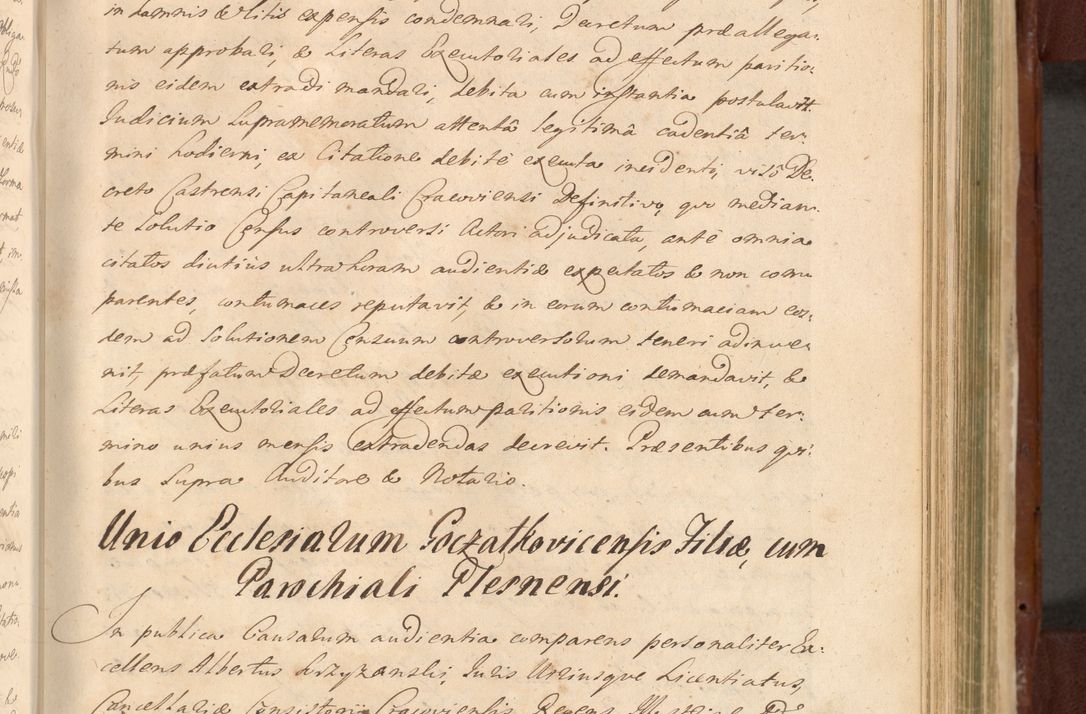 in damnis & litis expensis condemnari, Decretum præallega-
tum approbari, & Literas Executoriales ad effectum paritio-
nis eidem extradi mandari, debita cum instantia postulavit.
Judicium Supramemoratum attentâ legitimâ cadentiâ ter-
mini hodierni, ex Citatione debitè executa incidenti, viso De-
creto Castrensi Capitaneali Cracoviensi Definitivo, quo median-
te solutio Census controversi Actori adjudicata, ante omnia
citatos diutiùs ultra horam audientiæ expectatos & non com-
parentes, contumaces reputavit, & in eorum contumaciam eos-
dem ad solutionem Censuum controversorum teneri adinve-
nit, præfatum Decretum debitæ executioni demandavit, &
Literas Executoriales ad effectum paritionis eidem cum ter-
mino unius mensis extradendas decrevit. Præsentibus qui-
bus supra Auditore & Notario.
Unio Ecclesiarum Goczatkovicensis Filiæ, cum
Parochiali Plesnensi.
In publica Causarum audientia comparens personaliter Ex-
cellens Albertus Krzyzanski, Juris Utriusque Licentiatus,
Cancellariæ Consistorii Cracoviensis Regens